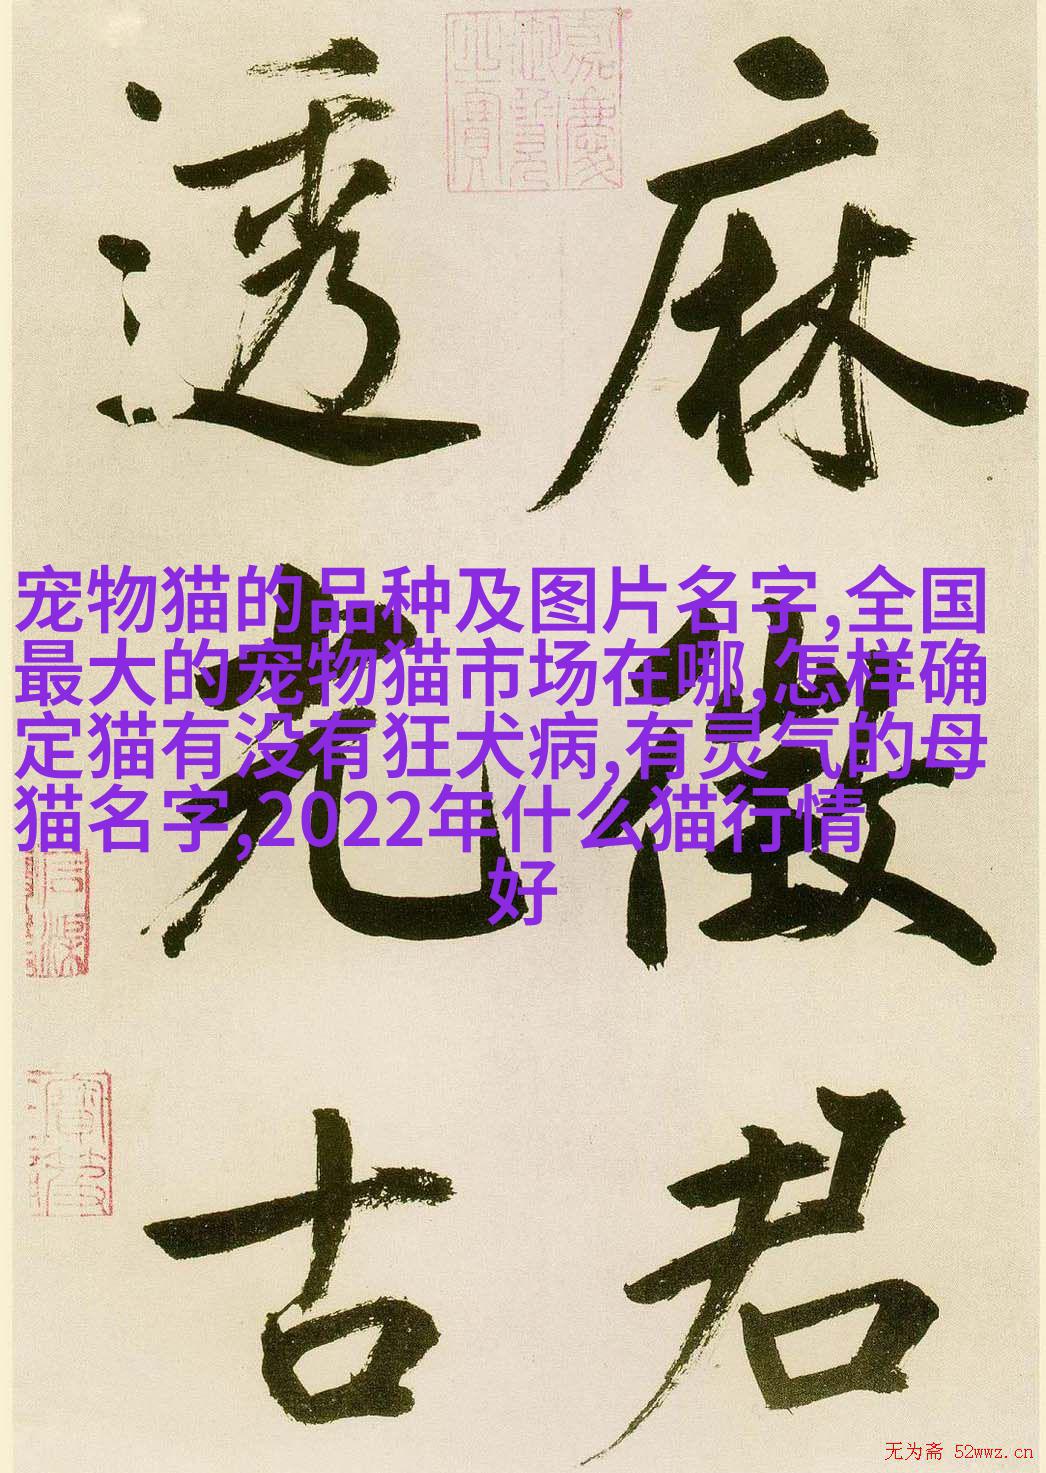 嘉慶御覽之寶
麻徵君
透光古
宠物猫的品种及图片名字,全国
最大的宠物猫市场在哪,怎样确
定猫有没有狂犬病,有灵气的母
猫名字,2022年什么猫行情
好
无为斋 52wwz.cn